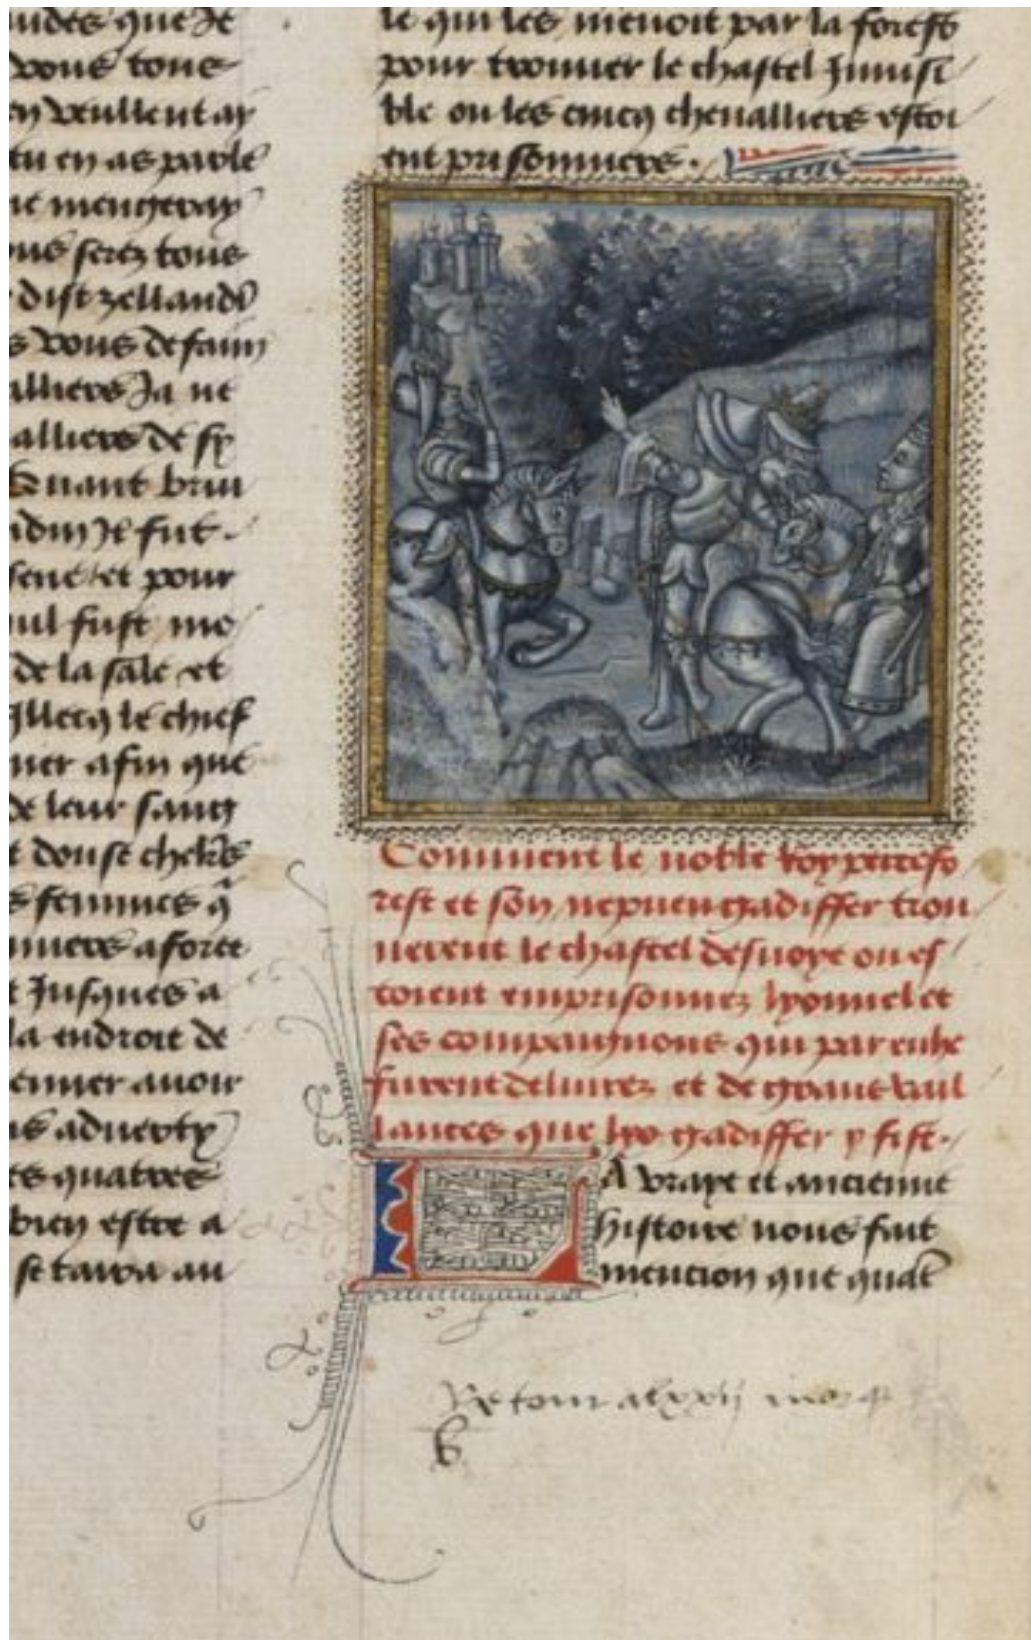 udes que Je
vous tous
en veullent ay
tu en as parle
ne mengeray
ous serez tous
dist zellandi
s vous defain
alliers Ja ne
alliers de sy
Quant brui
Il fut.
et pour
uil fust mo
de la sale et
Illecq le chief
ner afin que
de leur sang
t douse chlrs
s femmes q
nniers a force
t Jusques a
la endroit de
enner avoir
is adverty
es quatres
bien estre a
se tarra au
le qui les menoit par la forest
pour trouver le chastel Invisi
ble ou les cincq chevalliers estoi
ent prisonniers.
Comment le noble roy percefo
rest et son nepueu gadiffer trou
verent le chastel desvoye ou es
toient emprisonnez lyonnel et
ses compaignons qui par eulx
furent delivrez et de grant vail
lances que lyo gadiffer y fist.
LA vraye et ancienne
histoire nous fait
mencion que quat
Retour
b